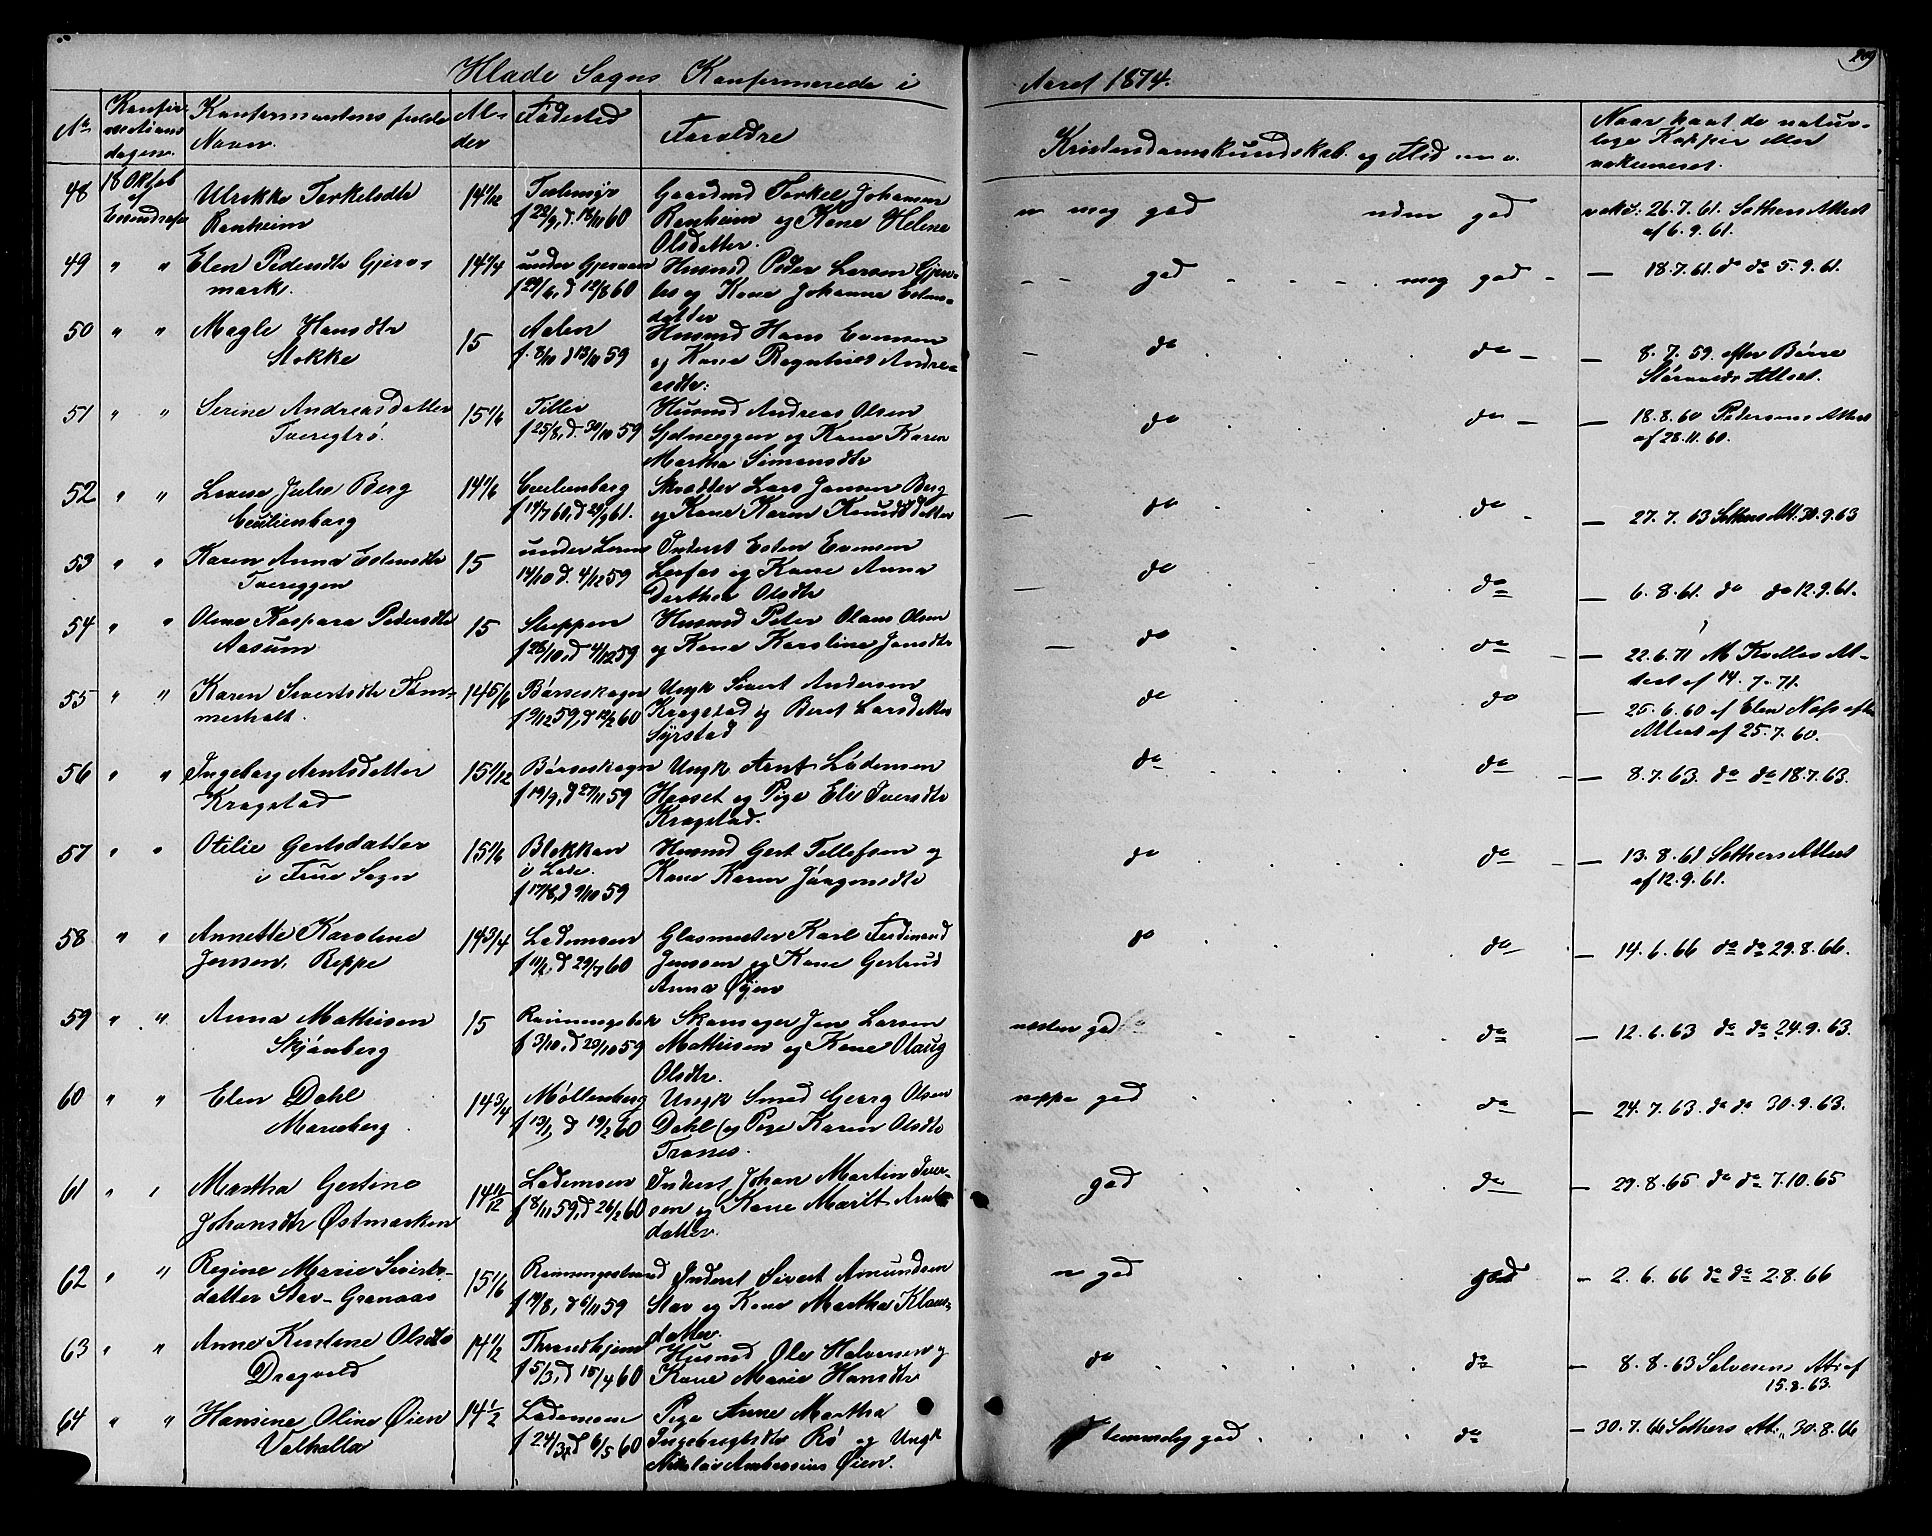 Hlade Sogns Konfirmerede i Aaret 1874.
209
No Konfirmations dagen. Konfirmantens fulde Navn. Alder Födested Foraldre Kristendomskundskab og Flid m. v. Naar havt de naturlige Kopper eller vakcineret.
48 18 Oktob Ulrikke Torkelsdtr 14 1/12 Gaardmd Torkel Johansen n meg god uden god vakc. 26.7.61. Sothers Attest
Ranheim f 22/9, d. 18/11 60 Ranheim og Kone Helene af 6.9.61.
Olsdatter.
49 " " Elen Pedersdtr Gjervmark. 14 1/4 under Husmd Peder Larsen
f 29/6, d 12/8 60 og Kone Johanna Estensdatter
- - god - - - meg god - - 18.7.61. do do 5.9.61.
50 " " Magle Hansdtr 15 Aalen Husmd Hans Evensen
Stokke f. 8/10 d 13/11 59 og Kone Andreasdtr.
- do . . . do - - 8.7.59. efter Attest.
51 " " Serine Andreasdatter 15 1/6 Tiller Husmd Andreas Olsen
f 25/8, d. 30/10 59 og Kone Karen
Martha Simonsdtr
do . . do - - 18.8.60 Pedersens Attest
af 28.11.60.
52 " " Lovise Julie Berg 14 1/6 Cecilienborg Skrædder Lars Jensen Berg
Cecilienborg f 19/7 60, d 29/9 61. og Kone Karen Knudsdatter
- do . . do - 27.7.63 Sothers Att. 30.9.63
53 " " Karen Anna Estensdtr 15 under Leren Inderst Esten Evensen
Tvereggen 14/10 d. 4/12 59 og Kone Anna
Dorthea Olsdtr
- do . . do - 6.8.61. do do 12.9.61.
54 " " Olena Kaspara Pedersdtr 15 Steppen Husmd Peter Olaus Olsen
Aasum f 28/10, d 4/12 59 og Kone Karoline Jonsdtr
- do . . do - 22.6.71 M Kvelles Attest af 14.7.71.
55 " " Karen Sivertsdtr Tømmerholt. 14 5/6 Børseskogn Ungk Sivert Andersen
f 9/12 59, d 12/2 60 Krogstad og Beret Larsdatter
Syrstad
do . . do - 25.6.60 af Elen Næss efter
Attest af 25.7.60.
56 " " Ingeborg Arntsdatter 15 1/12 Børseskogn Ungk Arnt Lademsen
Krogstad f 19/9, d 27/11 59 og Pige Eli Iversdtr
Krogstad.
do . . do - 8.7.63. do do 18.7.63.
57 " " Otilie Gertsdatter 15 1/6 Blekkan Husmd Gert Tellefsen og
i Frue Sogn i Lade. Kone Karen Jörgensdtr
f 17/8, d 9/10 59
do . . do - 13.8.61 Sothers Attest
af 12.9.61.
58 " " Annette Karoline 14 3/4 Lademoen Glasmester Karl Ferdinand
Jenssen, Reppe f 11/2, d 29/7 60 Jenssen og Kone Gertrud
Anna Øyen
do . . do - 14.6.66 do do 29.8.66.
59 " " Anna Mathisen 15 Skomager Jon Larsen
Skjönberg f 3/10, d 29/10 59 Mathisen og Kone Olaug
Olsdtr.
næsten god . . do - 12.6.63 do do 24.9.63.
60 " " Elen Dahl 14 3/4 Møllenberg Ungk Smed Georg Olsen
Marieberg. f 13/1, d 19/2 60 Dahl og Pige Karen Olsdtr
Tranes.
neppe god . . do - 24.7.63. do do 30.9.63.
61 " " Martha Gestine 14 11/12 Lademoen Inderst Johan Martin Iversen
Johansdtr Østmarken f 8/11 59, d 26/2 60 og Kone Marit Arntsdatter.
god . . do - 29.8.65 do do 7.10.65
62 " " Regine Marie Sivertsdatter 15 1/6 Inderst Sivert Amundsen
Stav-Granaas f 19/8, d 6/11 59 Stav og Kone Martha Klausdatter.
n god god - 2.6.66 do do 2.8.66
63 " " Anne Kirstine Olsdtr 14 1/2 Throndhjem Husmd Ole Halvorsen og
Dragvold f 5/3, d 15/4 60 Kone Marie Hansdtr
do . . do - 8.8.63 Salvesens Att. af
15.8.63.
64 " " Hansine Oline Øien 14 1/2 Lademoen Pige Anne Martha
Valhalla f 24/3, d 6/5 60 Ingebregtsdtr Rö og Ungk
Nikolai Ambrosius Øien.
temmelig god . . do - 30.7.66 Sothers At. 30.8.66